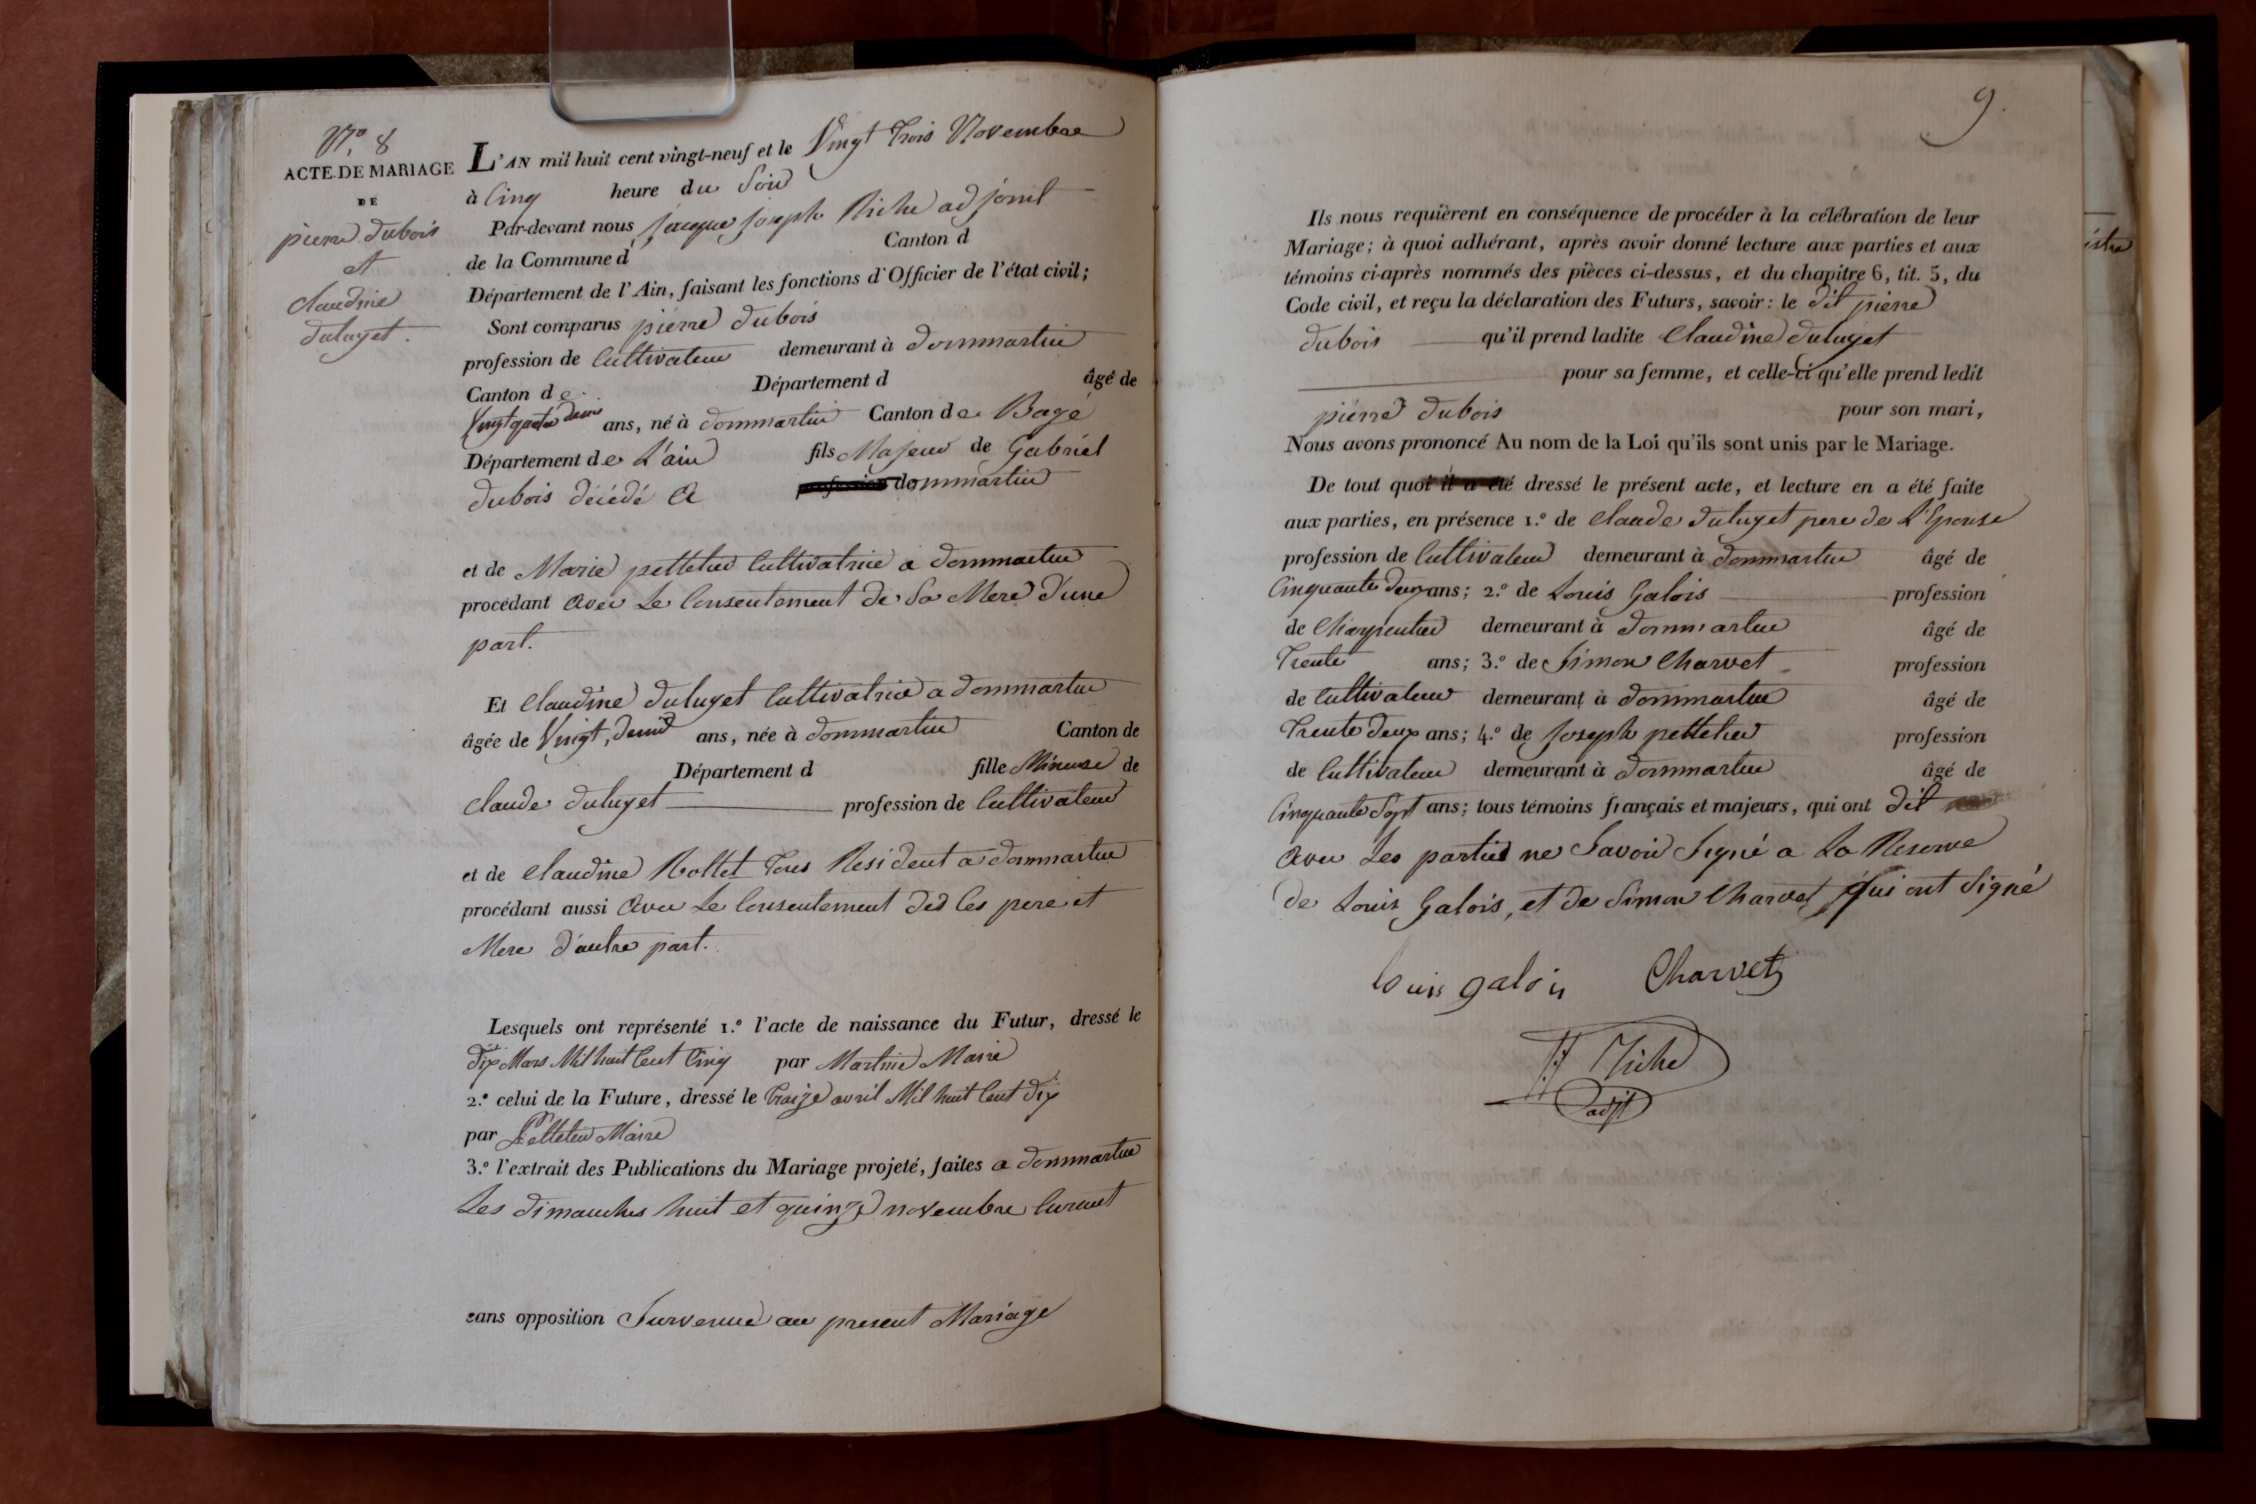 N.o 8
ACTE DE MARIAGE
DE
pierre dubois
et
claudine
duluyet.
L'AN mil huit cent vingt-neuf et le Vingt Trois Novembre
à Cinq heure du Soir
Par-devant nous Jacque Joseph Riche adjoint
de la Commune d Canton d
Département de l'Ain, faisant les fonctions d'Officier de l'état civil;
Sont comparus pierre dubois
profession de Cultivateur demeurant à dommartin
Canton de Département d âgé de
Vingt quatre demis ans, né à dommartin Canton de Bagé
Département de L'ain fils Majeur de Gabriel
dubois décédé a dommartin
et de Marie pelletier Cultivatrice a dommartin
procédant avec Le Consentement de Sa Mere d'une
part.
Et Claudine duluyet Cultivatrice a dommartin
âgée de Vingt, demis ans, née à dommartin Canton de
Département d fille Mineuse de
Claude duluyet profession de Cultivateur
et de Claudine Rollet Tous Resident a dommartin
procédant aussi avec Le Consentement des Ces pere et
Mere d'autre part.
Lesquels ont représenté 1.o l'acte de naissance du Futur, dressé le
dix Mars Mil huit Cent Cinq par Martine Maire
2.o celui de la Future, dressé le Traize avril Mil huit Cent dix
par Pelletier Maire
3.o l'extrait des Publications du Mariage projeté, faites a dommartin
Les dimanches huit et quinze novembre Curent
sans opposition Survenue au present Mariage
9.
Ils nous requièrent en conséquence de procéder à la célébration de leur
Mariage; à quoi adhérant, après avoir donné lecture aux parties et aux
témoins ci-après nommés des pièces ci-dessus, et du chapitre 6, tit. 5, du
Code civil, et reçu la déclaration des Futurs, savoir: le dit pierre
dubois qu'il prend ladite Claudine duluyet
pour sa femme, et celle-ci qu'elle prend ledit
pierre dubois pour son mari,
Nous avons prononcé Au nom de la Loi qu'ils sont unis par le Mariage.
De tout quoi il a été dressé le présent acte, et lecture en a été faite
aux parties, en présence 1.o de Claude duluyet pere de L'Epouse
profession de Cultivateur demeurant à dommartin âgé de
Cinquante deux ans; 2.o de Louis Galois profession
de Charpentier demeurant à dommartin âgé de
Trente ans; 3.o de Simon Charvet profession
de Cultivateur demeurant à dommartin âgé de
Trente deux ans; 4.o de Joseph pelletier profession
de Cultivateur demeurant à dommartin âgé de
Cinquante Sept ans; tous témoins français et majeurs, qui ont dit
avec Les parties ne Savoir Signé a La Reserve
de Louis Galois, et de Simon Charvet, qui ont Signé
louis galois Charvet
JJ Riche
adjt